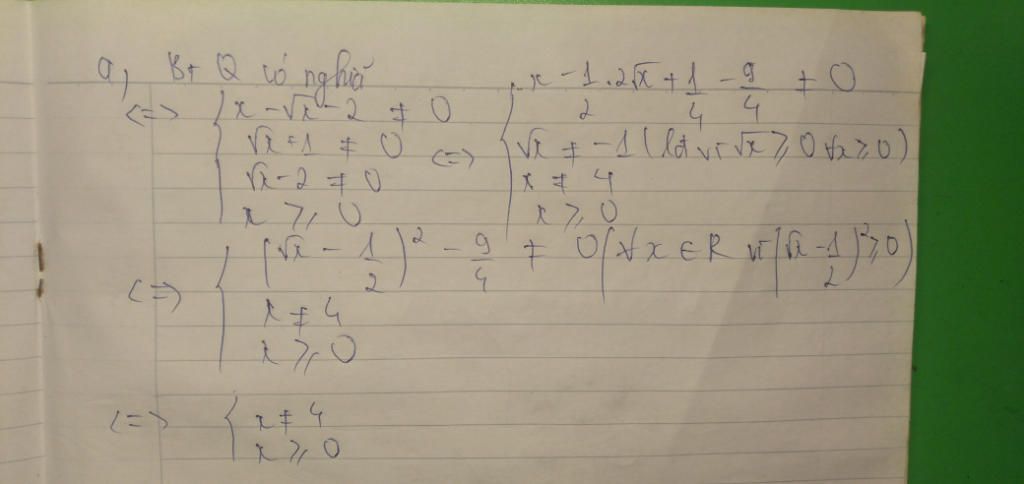 a, Bt Q có nghĩa
<=> { x - √x - 2 ≠ 0
√x + 1 ≠ 0
√x - 2 ≠ 0
x ≥ 0
<=> { x - 1/2 . 2√x + 1/4 - 9/4 ≠ 0
√x ≠ -1 (lđ vì √x ≥ 0 ∀x ≥ 0)
x ≠ 4
x ≥ 0
<=> { (√x - 1/2)² - 9/4 ≠ 0 (∀x ∈ R vì (√x - 1/2)² ≥ 0)
x ≠ 4
x ≥ 0
<=> { x ≠ 4
x ≥ 0